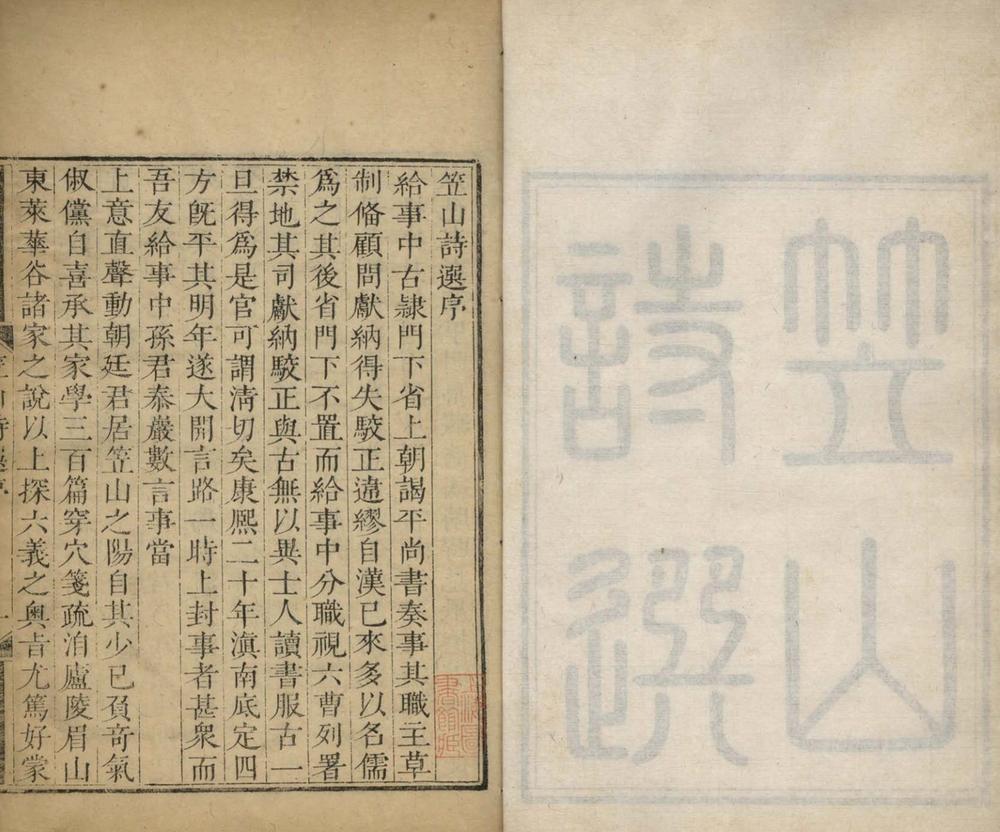 笠山
詩選
笠山詩選序
給事中古隷門下省上朝謁平尚書奏事其職主草
制俻顧問獻納得失駮正違繆自漢已來多以名儒
爲之其後省門下不置而給事中分職視六曹列署
禁地其司獻納駮正與古無以異士人讀書服古一
旦得爲是官可謂清切矣康熈二十年滇南底定四
方旣平其明年遂大開言路一時上封事者甚衆而
吾友給事中孫君㤗巖數言事當
上意直聲動朝廷君居笠山之陽自其少已負竒氣
俶儻自喜承其家學三百篇穿穴箋疏洎廬陵眉山
東萊華谷諸家之說以上探六義之奥㫖尤篤好蒙